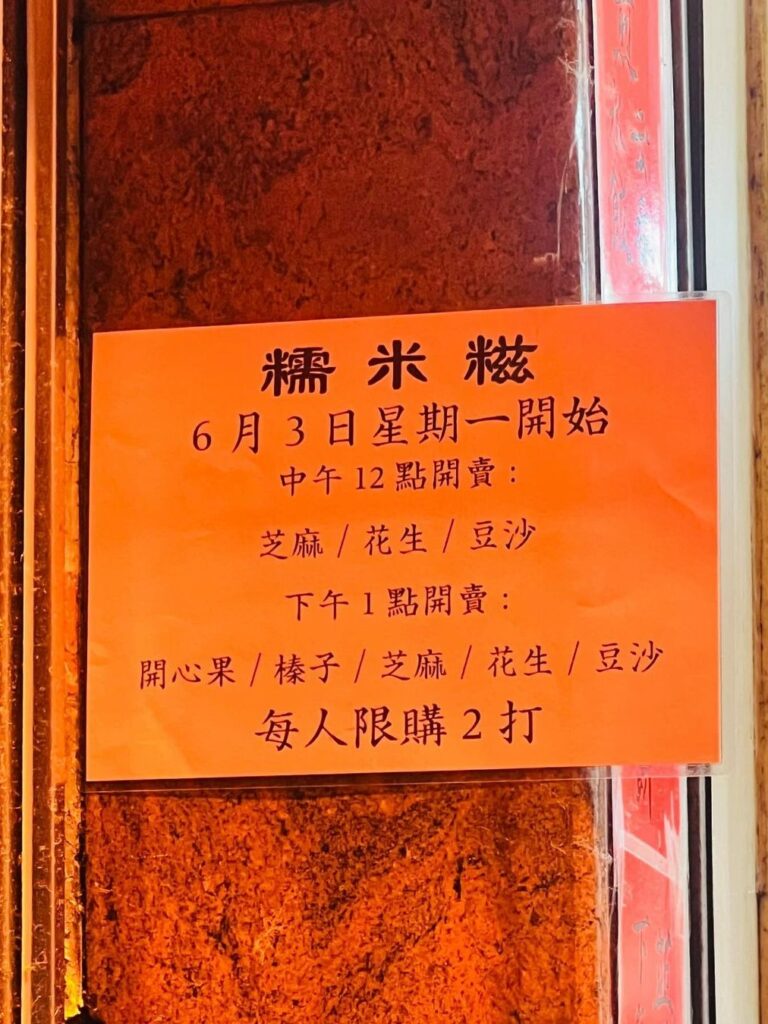 糯米糍
6月3日星期一開始
中午12點開賣：
芝麻 / 花生 / 豆沙
下午1點開賣：
開心果 / 榛子 / 芝麻 / 花生 / 豆沙
每人限購2打